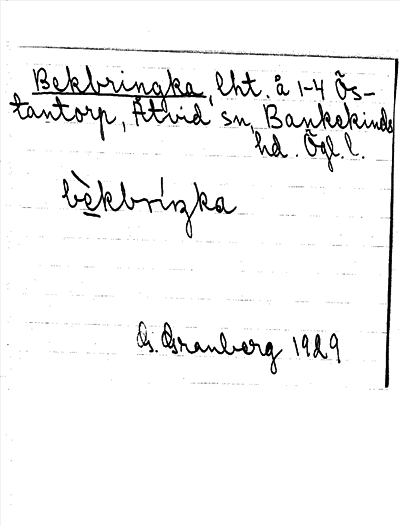 Bekbringka, lht. å 1-4 Ös-
tantorp, Åtvid sn, Bankekinds
hd. Ögl. l.
bèkbríŋka
G. Granberg 1929